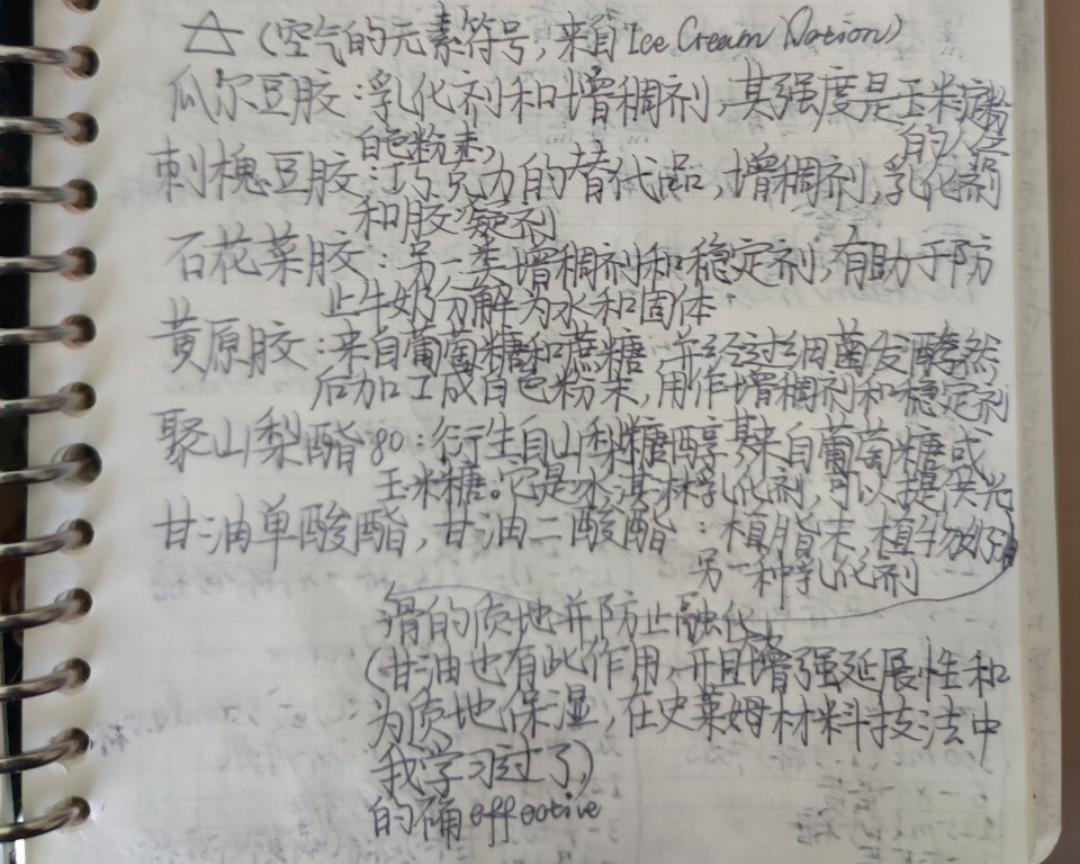 (空气的元素符号,来自Ice Cream Nation)
瓜尔豆胶:乳化剂和增稠剂,其强度是玉米淀粉
的8倍
白色粉末,
刺槐豆胶:巧克力的替代品,增稠剂,乳化剂
和胶凝剂
石花菜胶:另一类增稠剂和稳定剂,有助于防
止牛奶分解为水和固体.
黄原胶:来自葡萄糖和蔗糖,并经过细菌发酵然
后加工成白色粉末,用作增稠剂和稳定剂
聚山梨酯80:衍生自山梨糖醇,其来自葡萄糖或
玉米糖。它是冰淇淋乳化剂,可以提供光
甘油单酸酯,甘油二酸酯:植脂末,植物奶油
另一种乳化剂
滑的质地并防止融化
(甘油也有此作用,并且增强延展性和
为质地保湿,在史莱姆材料技法中
我学习过了)
的确effective